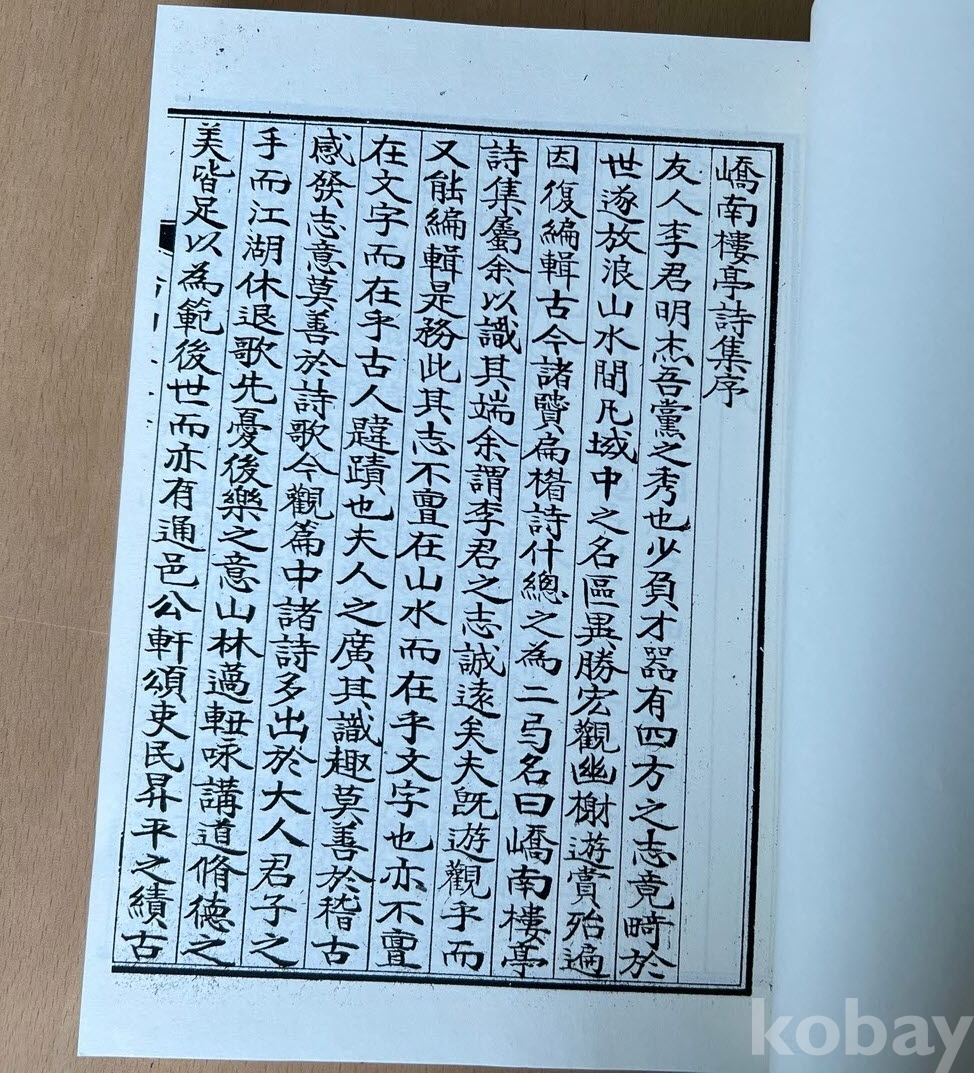 嶠南樓亭詩集序
友人李君明杰吾黨之秀也少負才器有四方之志竟畸於
世遂放浪山水間凡域中之名區異勝宏觀幽榭遊賞殆遍
因復編輯古今諸賢扁楣詩什總之為二弓名曰嶠南樓亭
詩集屬余以識其端余謂李君之志誠遠矣夫既遊觀乎而
又能編輯是務此其志不亶在山水而在乎文字也亦不亶
在文字而在乎古人韙蹟也夫人之廣其識趣莫善於稽古
感發志意莫善於詩歌今觀篇中諸詩多出於大人君子之
手而江湖休退歌先憂後樂之意山林薖軸咏講道脩德之
美皆足以為範後世而亦有通邑公軒頌吏民昇平之績古
kobay